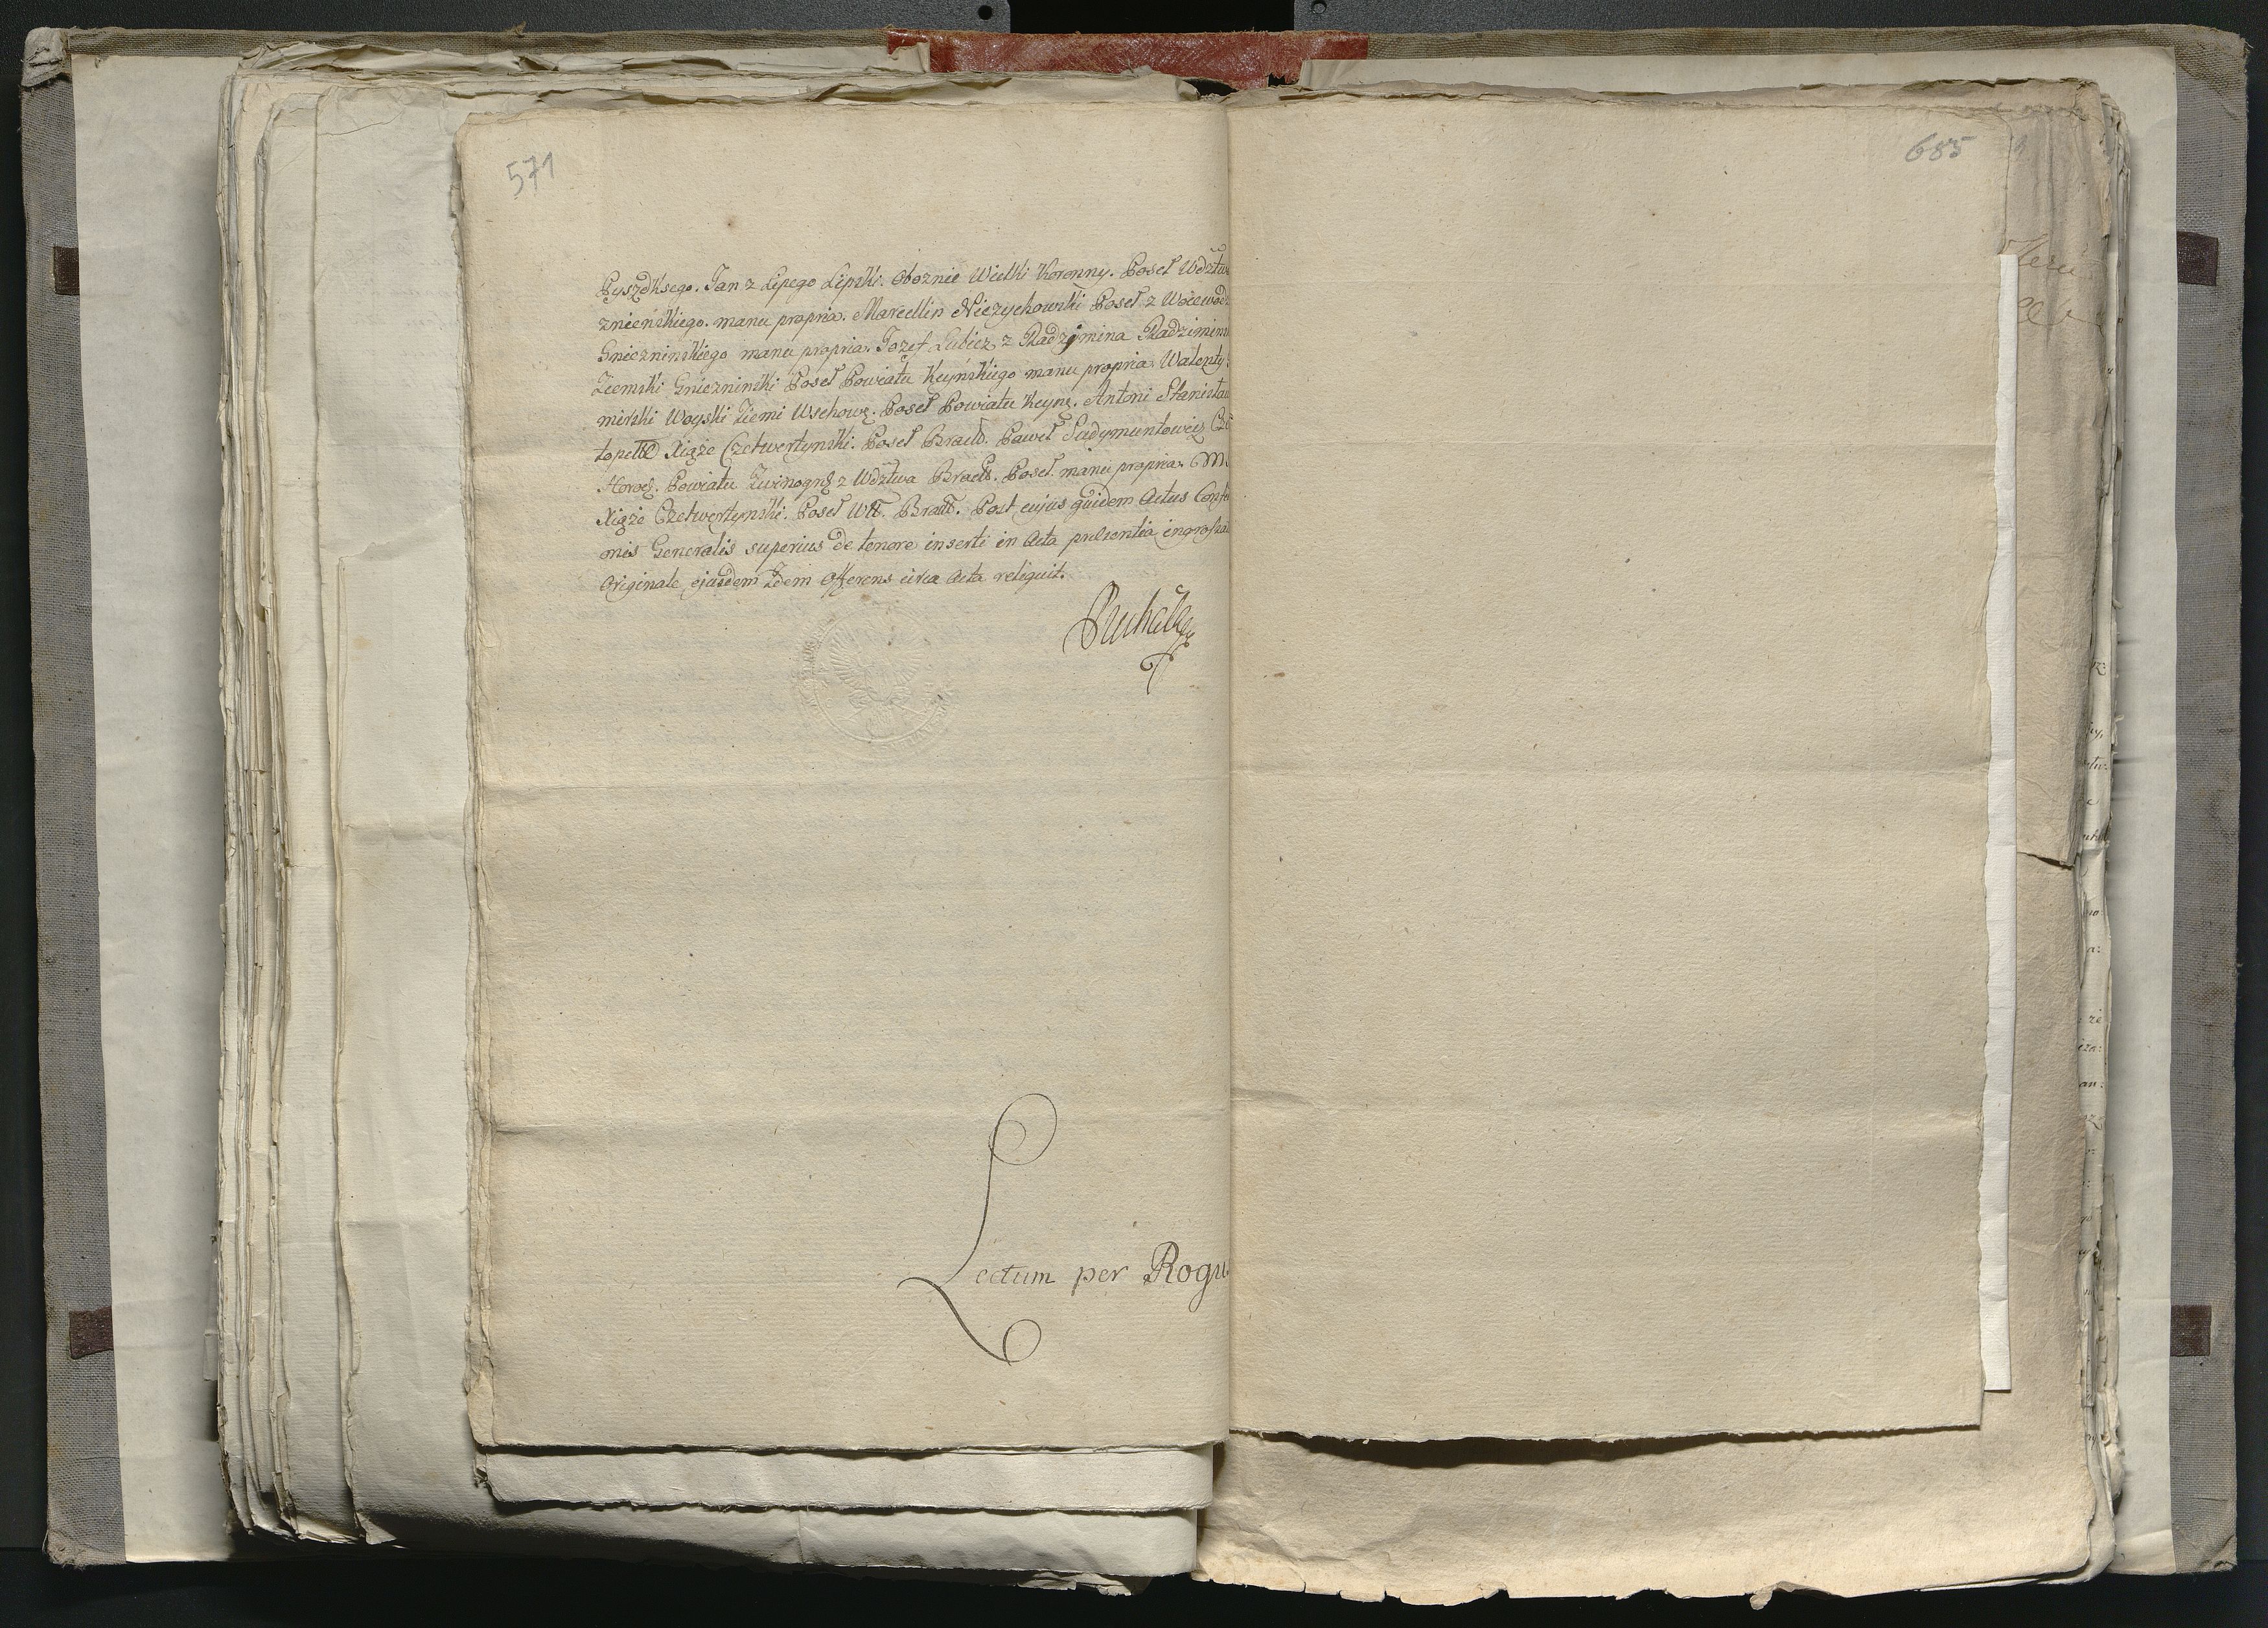 571
Pyszdrskego. Jan z Lipego Lipski. Oboznie Wielki Koronny. Poseł Wdztw
znieńskiego. manu propria. Marcellin Nieżychowski Poseł z Woiewodz
Gnieźninskiego manu propria. Jozef Lubicz z Radzymina Radzimins
Ziemski Gnieźninski Poseł Powiatu Keyńskiego manu propria. Walenty
mirski Woyski Ziemi Wschows. Poseł Powiatu Keyns. Antoni Stanisław
Xiąże Czetwertynski. Poseł Bracld. Paweł
Powiatu z Wdztwa Bracld. Poseł. manu propria. M
Xiąże Czetwertynski. Poseł Wtt. Post cujus quidem Actus Confe
onis Generalis superius de tenore inserti in Acta presentia ingrossa
Originale ejusdem Idem Offerens circa Acta reliquit.
Lectum per Rogu
685